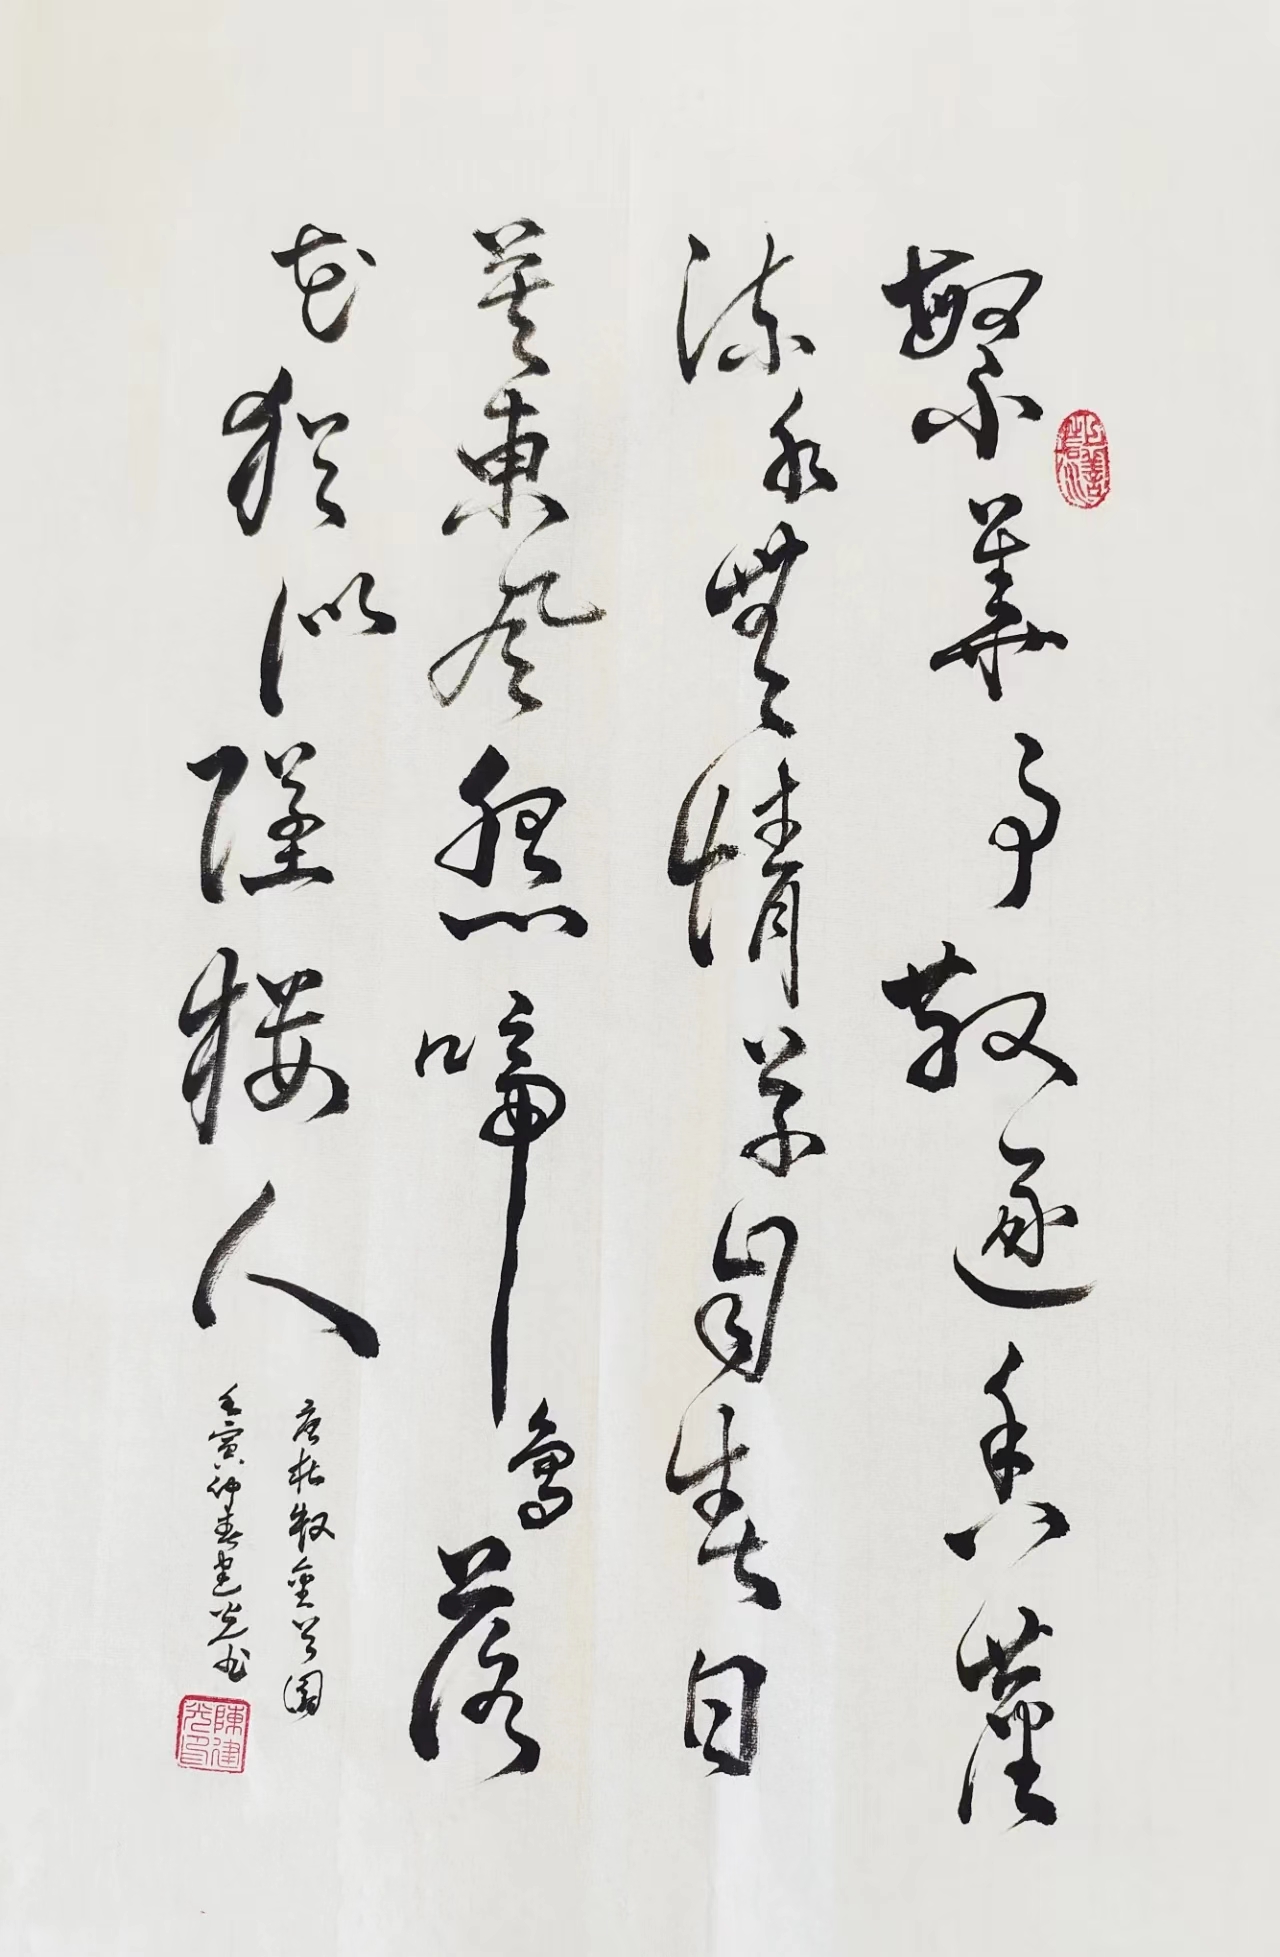 繁華事散逐香塵
流水無情草自春日
暮東風怨啼鳥落
花猶似墜樓人
唐杜牧金谷園
壬寅仲春建光书
上善若水
陳建光印